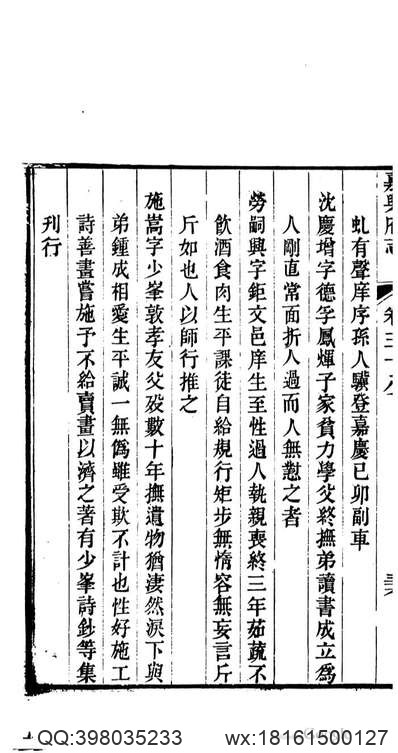 嘉興府志 卷五十八
虬有聲庠序孫人驥登嘉慶己卯副車
沈慶增字德孚鳳煇子家貧力學父終撫弟讀書成立為
人剛直常面折人過而人無懟之者
勞嗣興字鉅文邑庠生至性過人執親喪終三年茹蔬不
飲酒食肉生平課徒自給規行矩步無惰容無妄言斤
斤如也人以師行推之
施嵩字少峯敦孝友父歿數十年撫遺物猶淒然淚下與
弟鍾成相愛生平誠一無偽雖受欺不計也性好施工
詩善畫嘗施予不給賣畫以濟之著有少峯詩鈔等集
刊行
QQ:398035233 wx:18161500127